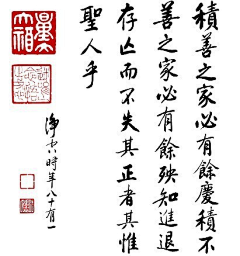 積善之家必有餘慶積不
善之家必有餘殃知進退
存亡而不失其正者其惟
聖人乎
淨空時年八十有一